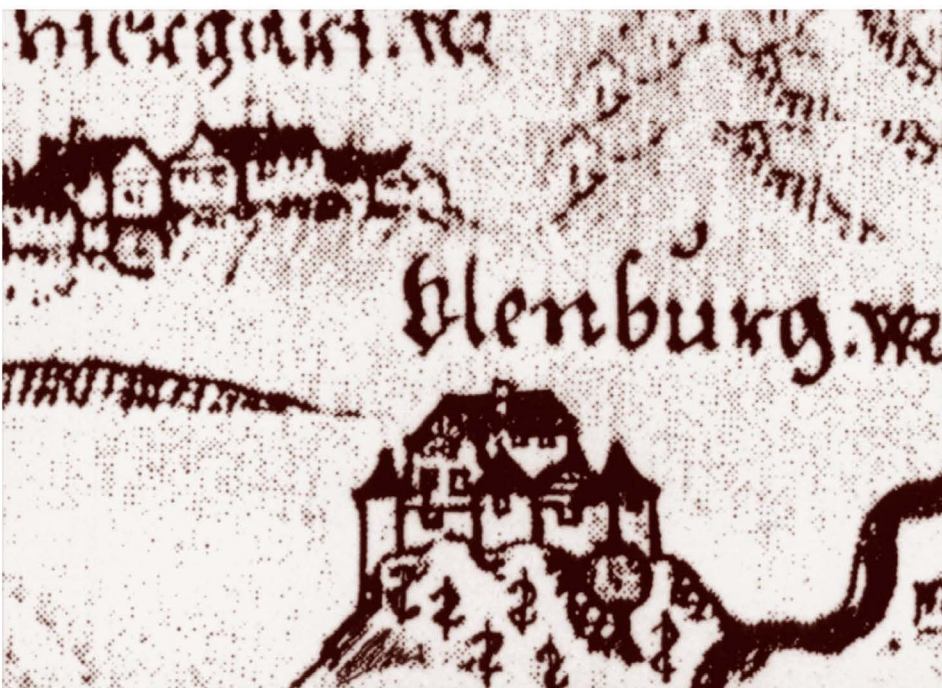 hiergart. W
Ulenbŭrg. W